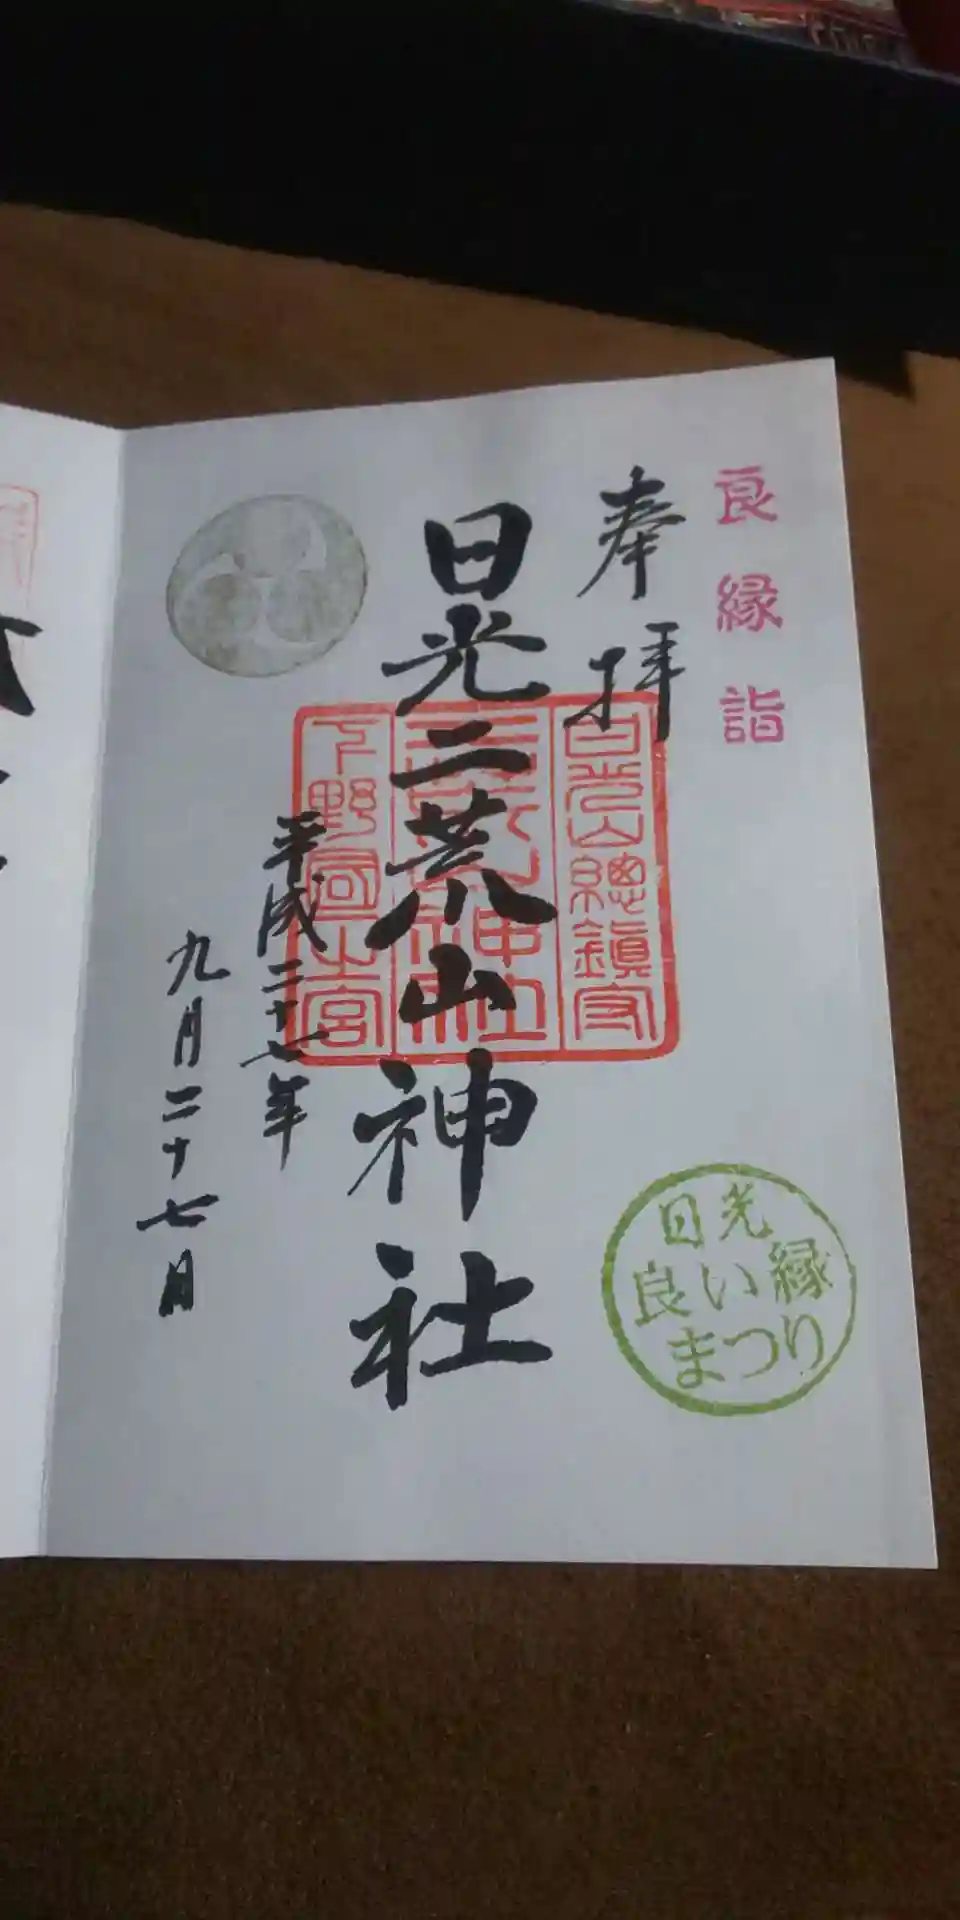 良縁詣
奉拝
日光山總鎮守
日光二荒山神社
下野國一宮
平成二十七年
九月二十七日
日光
良い縁
まつり